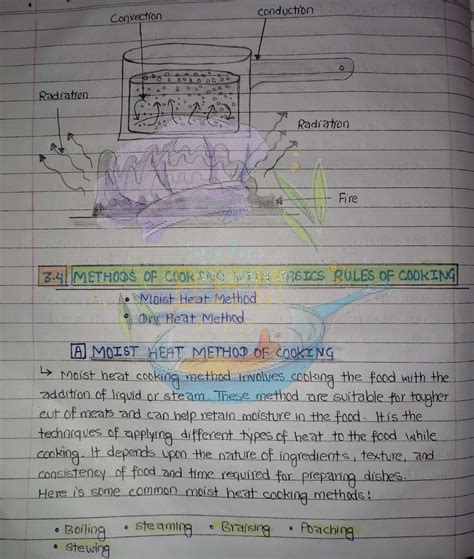 Convection
conduction
Radiation
Radiation
Fire
3.4 METHODS OF COOKING WITH BASICS RULES OF COOKING
• Moist Heat Method
• Dry Heat Method
A MOIST HEAT METHOD OF COOKING
↳ Moist heat cooking method involves cooking the food with the
addition of liquid or steam. These method are suitable for tougher
cut of meats and can help retain moisture in the food. It is the
techniques of applying different types of heat to the food while
cooking. It depends upon the nature of ingredients, texture, and
consistency of food and time required for preparing dishes.
Here is some common moist heat cooking methods:
• Boiling • steaming • Braising • Poaching
• stewing